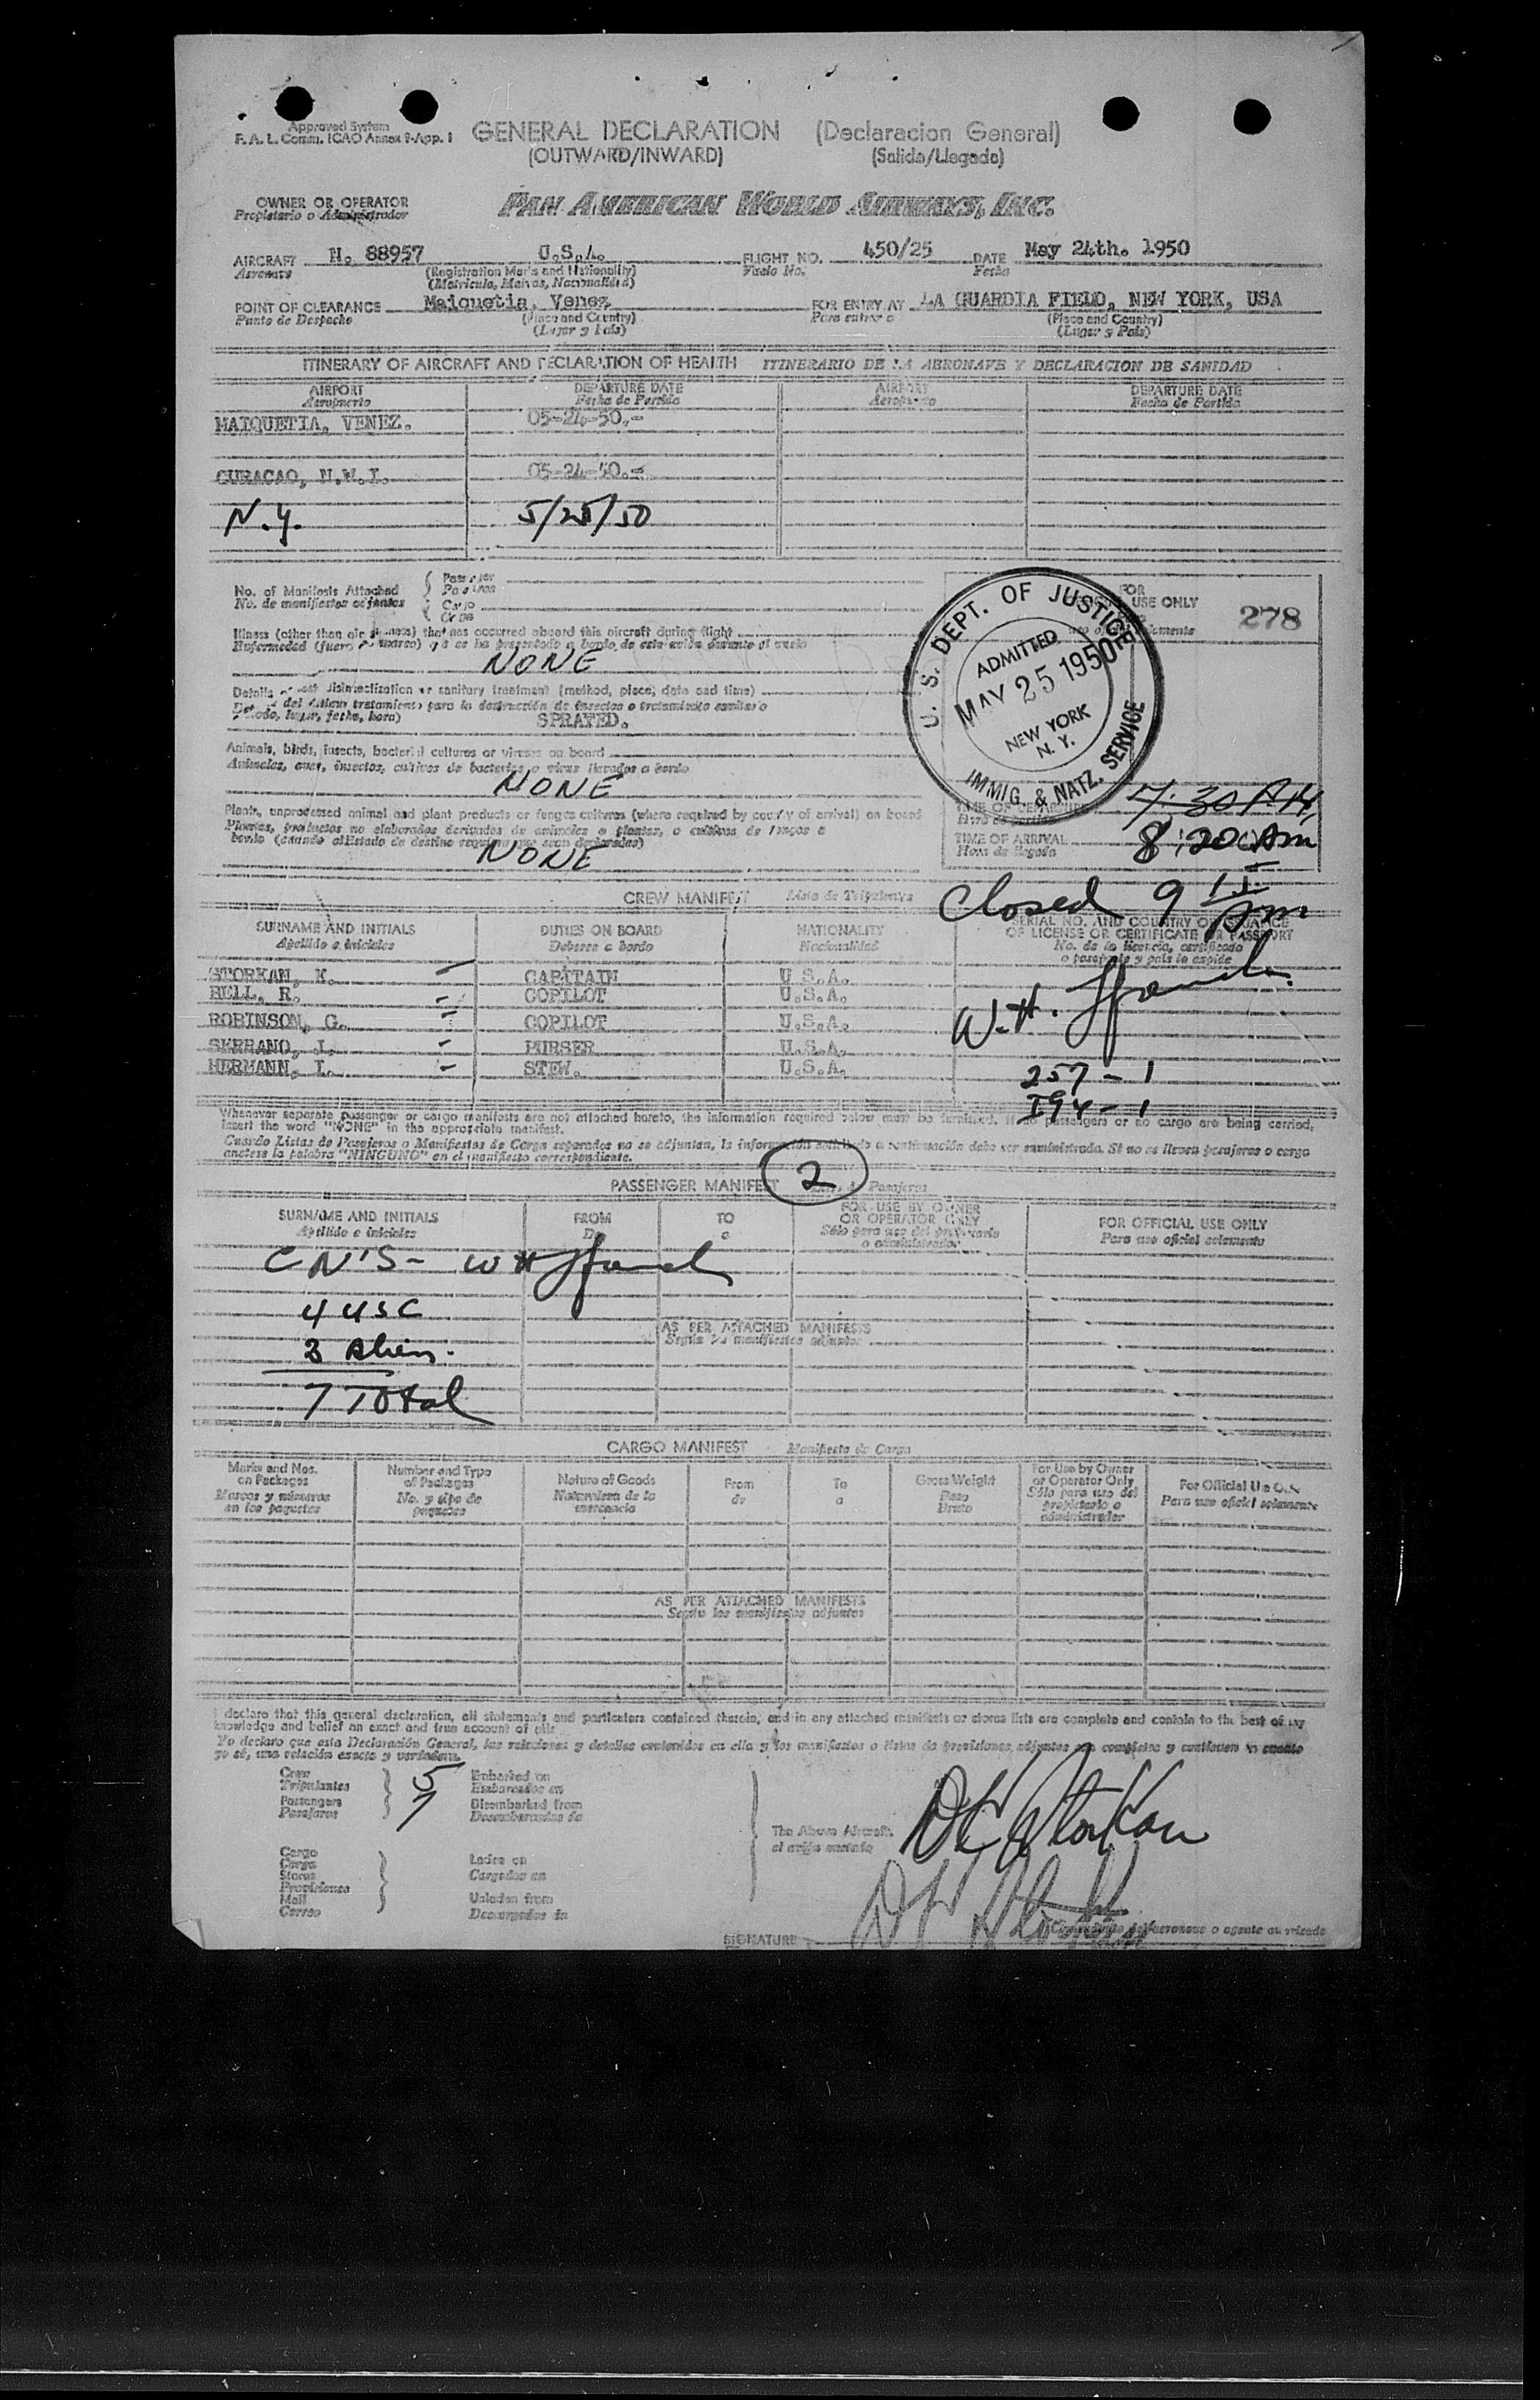 Approved System
F. A. L. Comm. ICAO Annex 9-App. 1
GENERAL DECLARATION (Declaracion General)
(OUTWARD/INWARD) (Salida/Llegada)
OWNER OR OPERATOR
Propietario o Administrador
PAN AMERICAN WORLD AIRWAYS, INC.
AIRCRAFT N. 88957 U.S.A. FLIGHT NO. 450/25 DATE May 24th. 1950
Aeronave (Registration Marks and Nationality) Vuelo No. Fecha
(Matricula, Marcas, Nacionalidad)
POINT OF CLEARANCE Maiquetia, Venez. FOR ENTRY AT LA GUARDIA FIELD, NEW YORK, USA
Punto de Despacho (Place and Country) Para entrar a (Place and Country)
(Lugar y Pais) (Lugar y Pais)
ITINERARY OF AIRCRAFT AND DECLARATION OF HEALTH ITINERARIO DE LA AERONAVE Y DECLARACION DE SANIDAD
AIRPORT DEPARTURE DATE AIRPORT DEPARTURE DATE
Aeropuerto Fecha de Partida Aeropuerto Fecha de Partida
MAIQUETIA, VENEZ. 05-24-50.-
CURACAO, N.W.I. 05-24-50.-
N.Y. 5/25/50
No. of Manifests Attached
No. de manifiestos adjuntos
Cargo
FOR
USE ONLY
278
Illness (other than air sickness) that has occurred aboard this aircraft during flight
Enfermedad (fuera de mareo) que se ha presentado a bordo de este avión durante el vuelo
NONE
Details of last disinsectization or sanitary treatment (method, place, date and time)
del último tratamiento para la destrucción de insectos o tratamiento sanitario
SPRAYED.
U. S. DEPT. OF JUSTICE
ADMITTED
MAY 25 1950
NEW YORK
N. Y.
IMMIG. & NATZ. SERVICE
Animals, birds, insects, bacterial cultures or viruses on board
Animales, aves, insectos, cultivos de bacterias o virus llevados a bordo
NONE
Plants, unprocessed animal and plant products or fungus cultures (where required by country of arrival) on board
Plantas, productos no elaborados derivados de animales o plantas, o cultivos de hongos a
NONE
TIME OF DEPARTURE 7:30 PM
TIME OF ARRIVAL 8:20 AM
Hora de llegada
Closed 9 15 am
CREW MANIFEST Lista de Tripulantes
SURNAME AND INITIALS DUTIES ON BOARD NATIONALITY SERIAL NO. AND COUNTRY OF ISSUANCE
Apellido e iniciales Deberes a bordo Nacionalidad OF LICENSE OR CERTIFICATE OR PASSPORT
No. de la licencia, certificado
o pasaporte y país lo expide
STORKAN, K. CAPITAIN U.S.A.
BELL, R. COPILOT U.S.A.
ROBINSON, G. COPILOT U.S.A.
SERRANO, J. PURSER U.S.A.
HERMANN, I. STEW. U.S.A.
257 - 1
I94 - 1
Whenever separate passenger or cargo manifests are not attached hereto, the information required below must be furnished. If no passengers or no cargo are being carried,
insert the word "NONE" in the appropriate manifest.
Cuando Listas de Pasajeros o Manifiestos de Carga separados no se adjuntan, la información solicitada a continuación debe ser suministrada. Si no se llevan pasajeros o carga
anótese la palabra "NINGUNO" en el manifiesto correspondiente.
2
PASSENGER MANIFEST
SURNAME AND INITIALS FROM TO FOR USE BY OWNER FOR OFFICIAL USE ONLY
Apellido e iniciales De a OR OPERATOR ONLY Para uso oficial solamente
Sólo para uso del propietario
o administrador
4 USC
AS PER ATTACHED MANIFESTS
Según los manifiestos adjuntos
3 Aliens
7 Total
CARGO MANIFEST Manifiesto de Carga
Marks and Nos. Number and Type Nature of Goods From To Gross Weight For Use by Owner For Official Use Only
on Packages of Packages Naturaleza de la de a Peso or Operator Only Para uso oficial solamente
Marcas y números No. y tipo de mercancía Bruto Sólo para uso del
en los paquetes paquetes propietario o
administrador
AS PER ATTACHED MANIFESTS
Según los manifiestos adjuntos
I declare that this general declaration, all statements and particulars contained therein, and in any attached manifests or stores lists are complete and contain to the best of my
knowledge and belief an exact and true account of
Yo declaro que esta Declaración General, las relaciones y detalles contenidos en ella y los manifiestos o listas de provisiones adjuntos son completos y contienen en cuanto
yo sé, una relación exacta y verdadera.
Crew 5 Embarked on
Tripulantes Embarcados en
Passengers 7 Disembarked from
Pasajeros Desembarcados de
The Above Aircraft.
el avión anotado
Cargo
Carga
Stores
Provisiones
Mail
Correo
Laden on
Cargados en
Unladen from
Descargados de
SIGNATURE